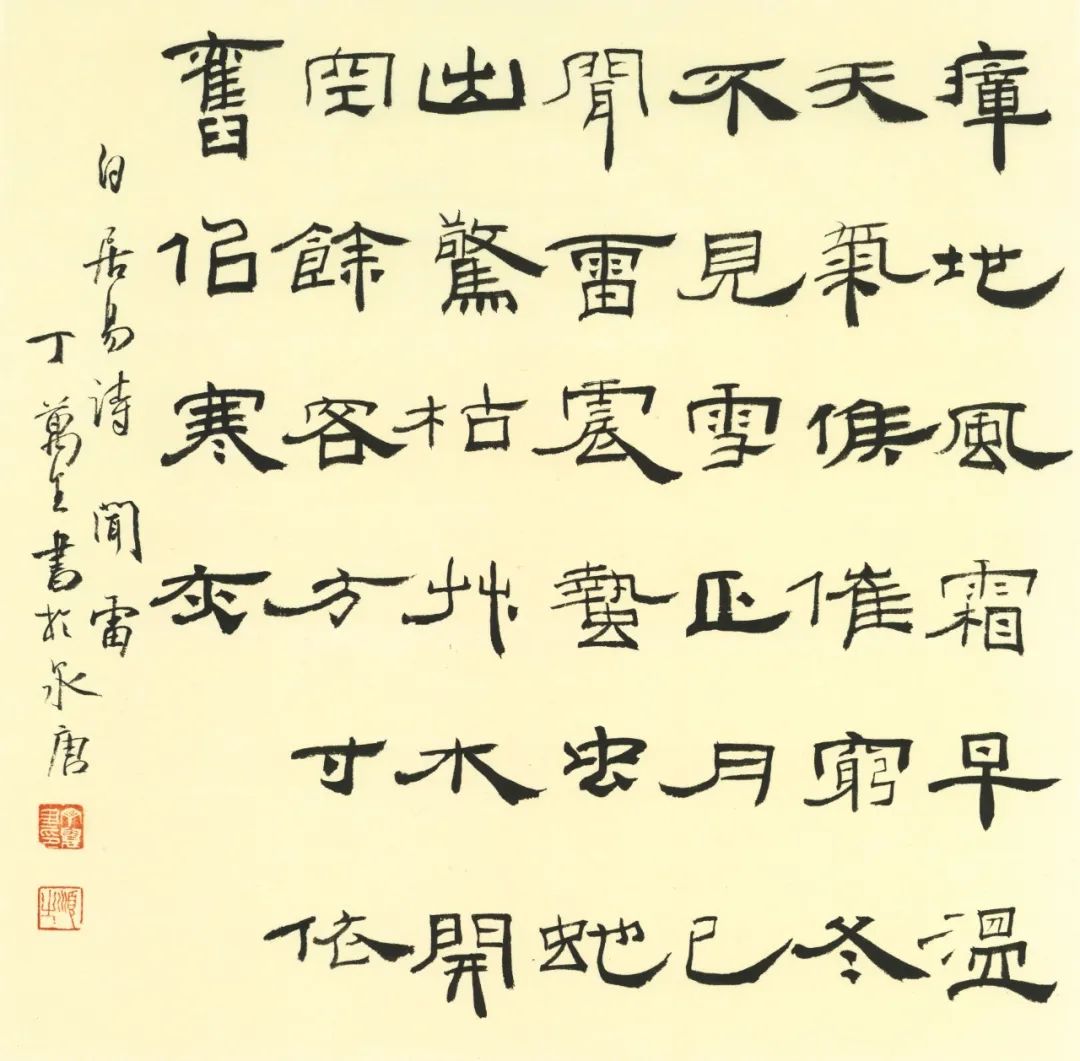 瘴地風霜早溫
天氣候催窮冬
不見雪正月已
聞雷震蟄虫蛇
出驚枯艸木開
空餘客方寸依
舊佀寒灰
白居易诗 聞雷
丁萬里書於泉唐